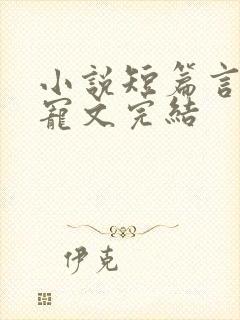 小說短篇言
寵文完結
伊克